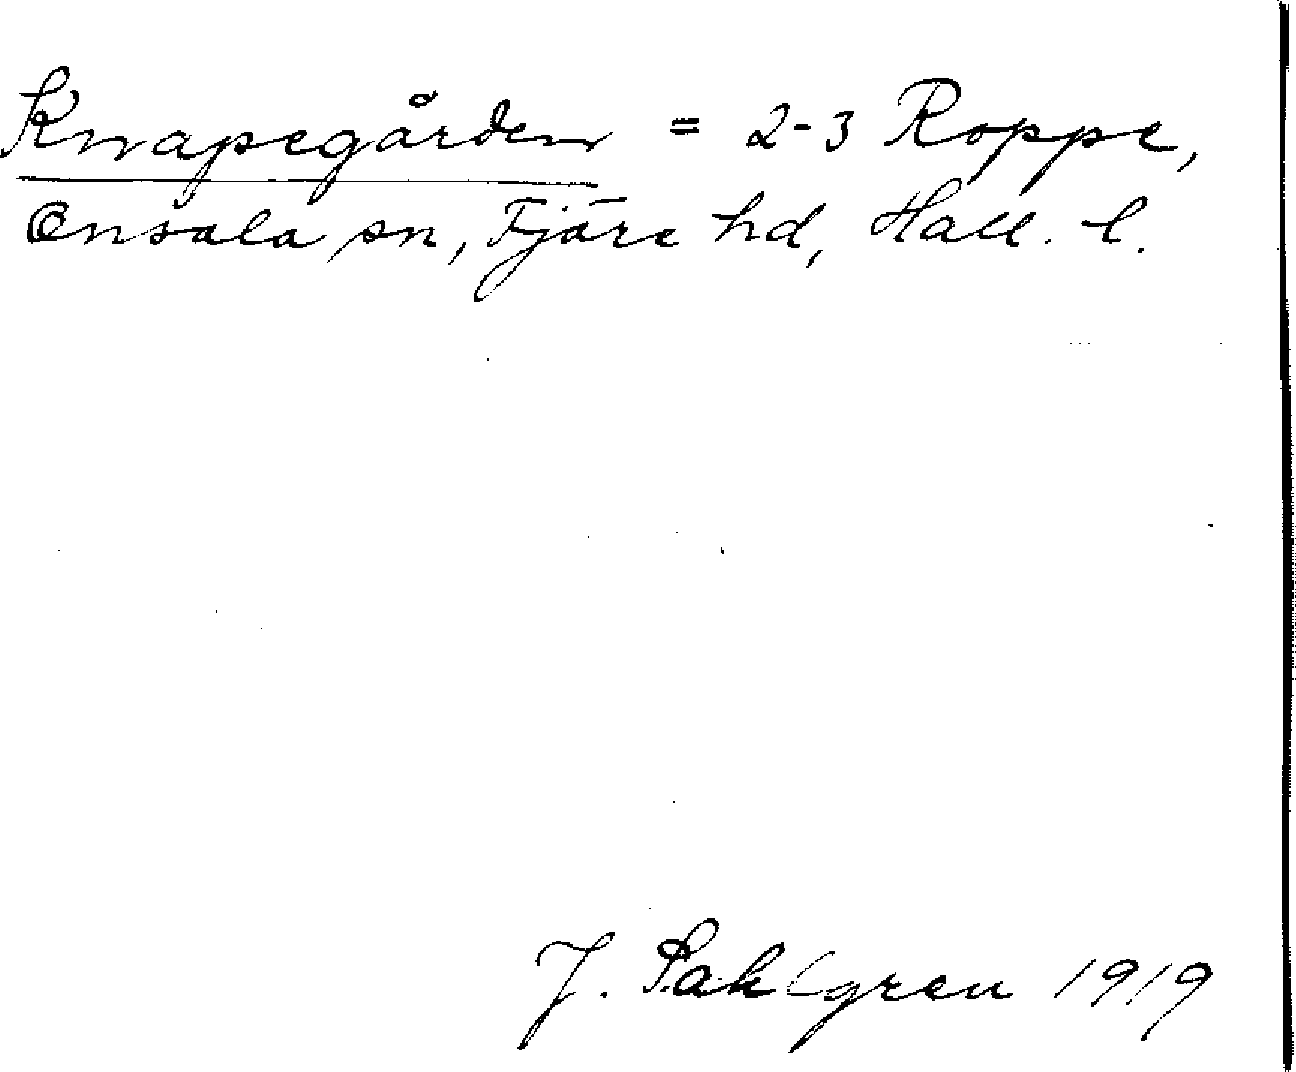 Knapegården = 2-3 Roppe,
Onsala sn, Fjäre hd, Hall. l.
J. Sahlgren 1919